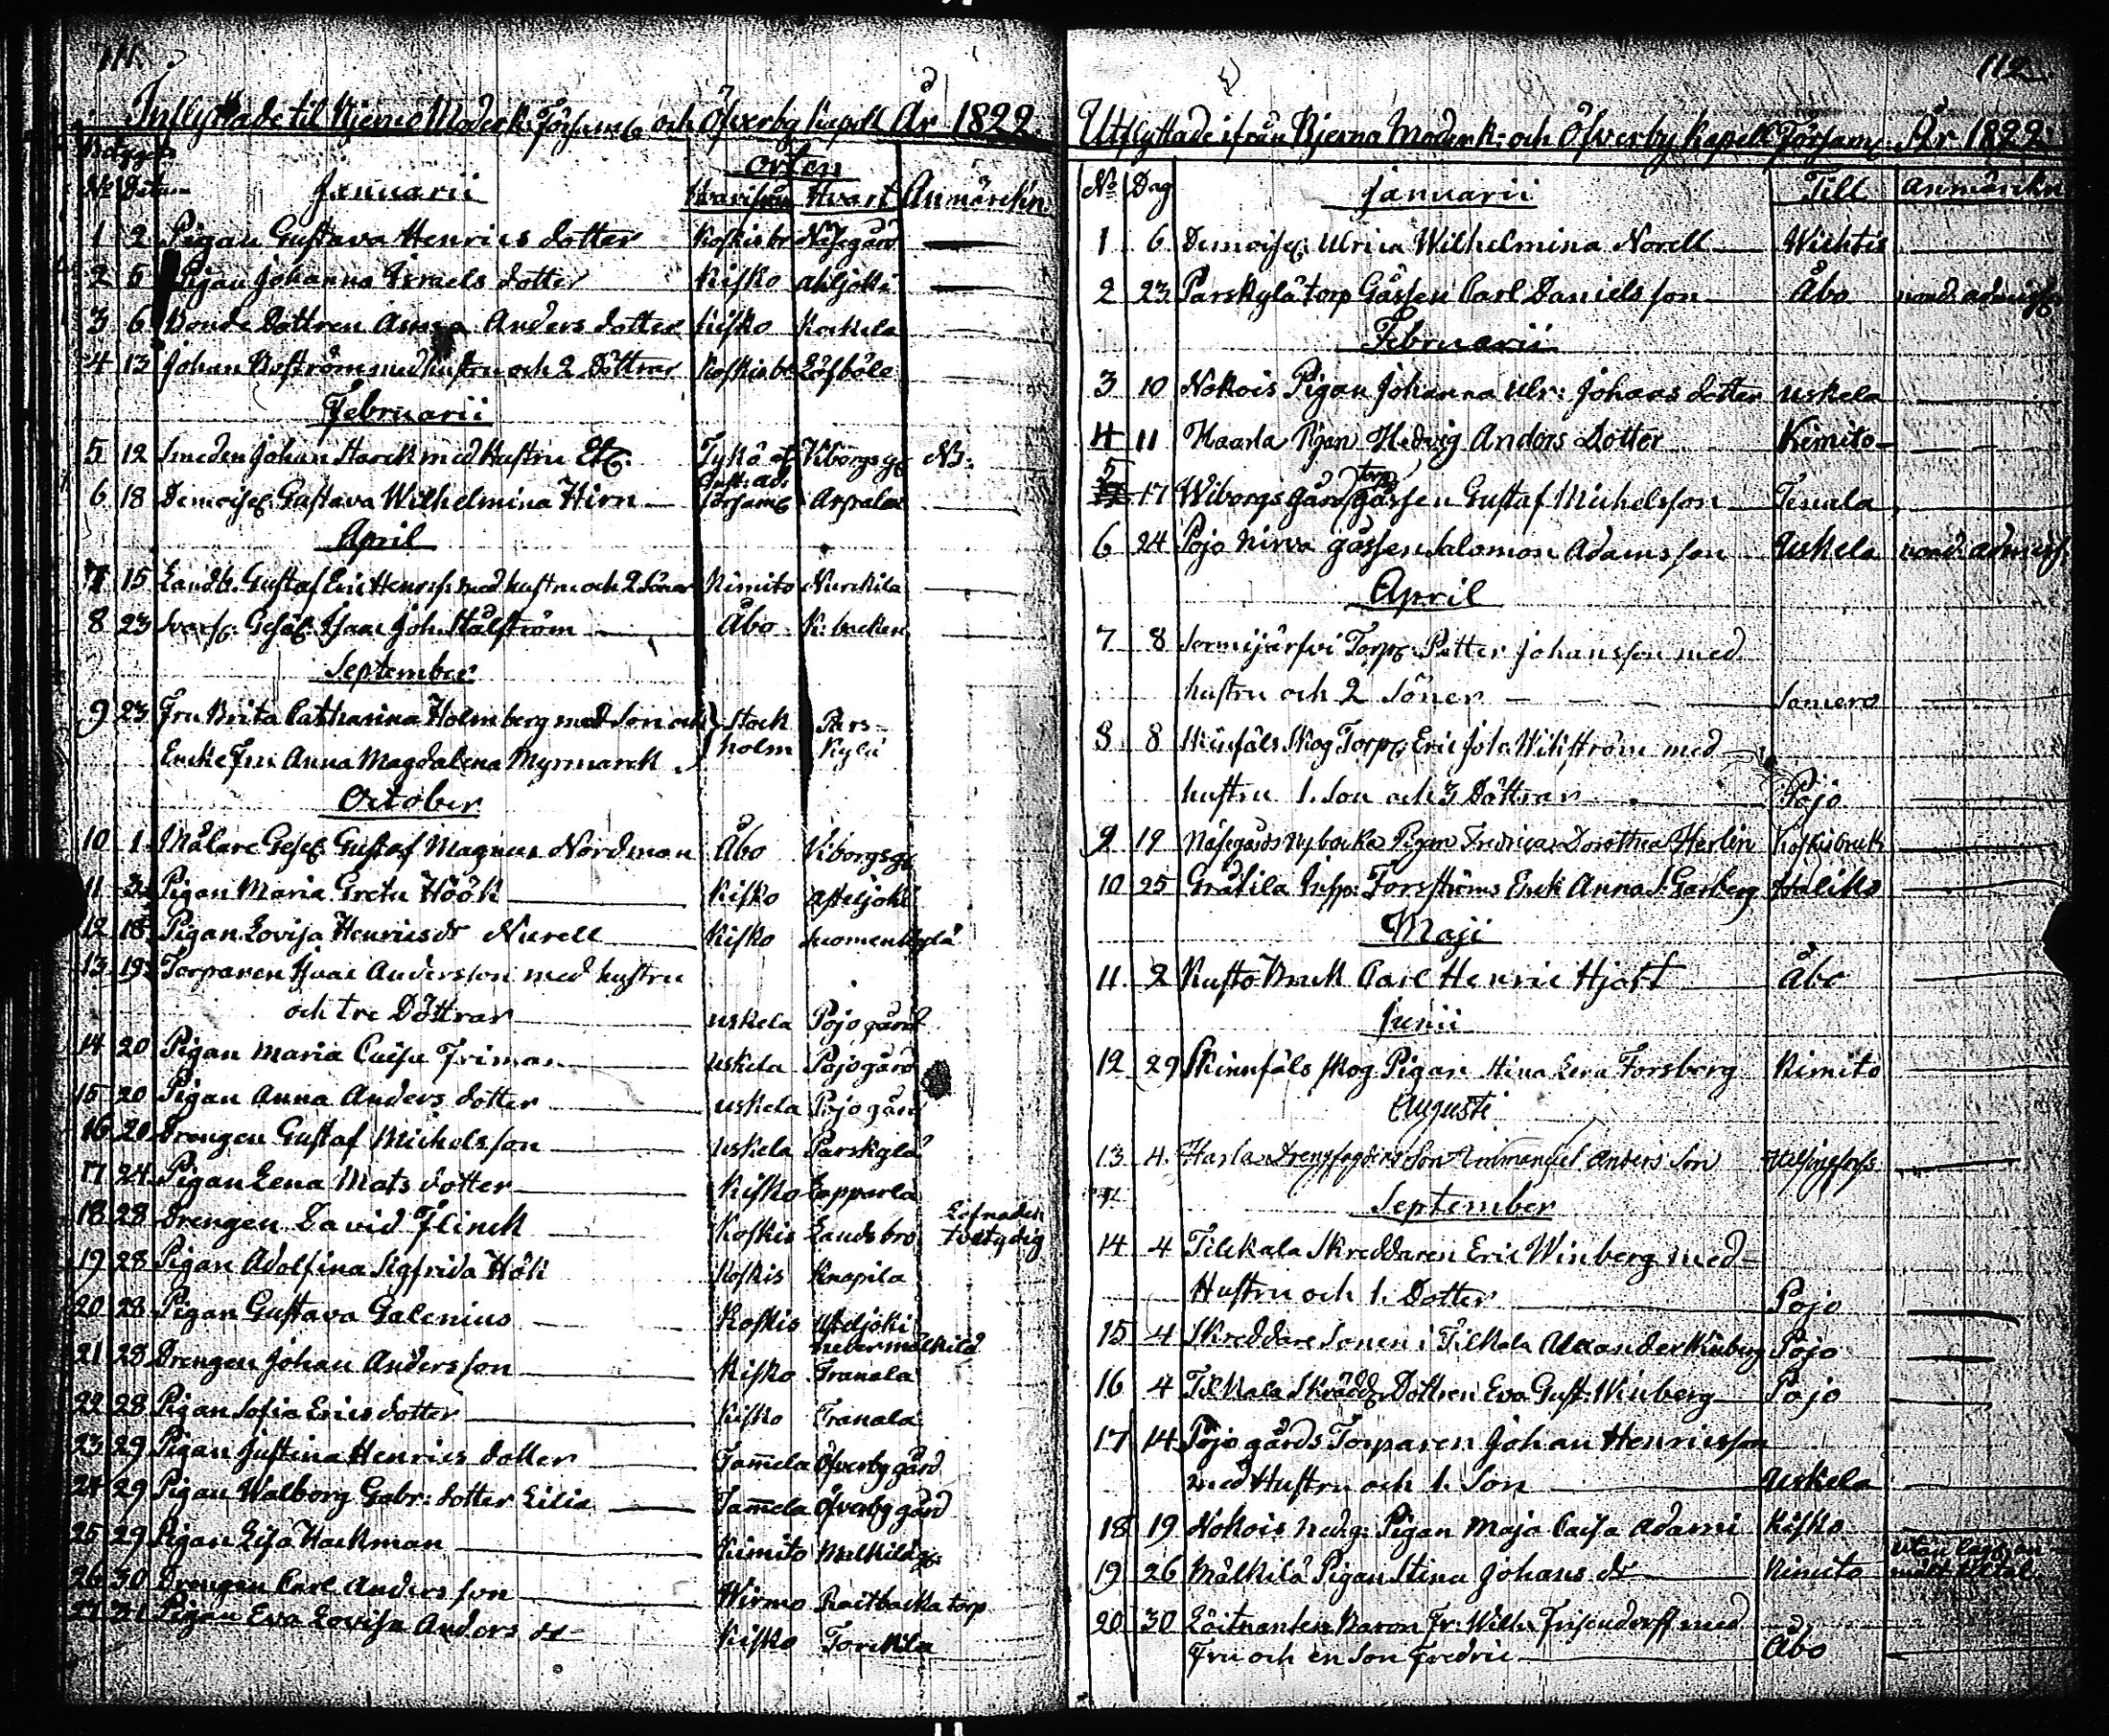 111.
Inflyttade til Bjerno Moderk: Församl och Öfverby Capell År 1822
Betygets
Orten
No Datum Januarii Hvarifrån Hvart Anmärckn.
1 2 Pigan Gustava Henrics dotter Koskis br Näsegård
2 5 Pigan Johanna Israels dotter Kisko
3 6 Bonde Dottren Anna Anders dotter Kisko Kockila
4 13 Johan Boström med hustru och 2 Döttrar Koskis br Löfböle
Februarii
5 12 Smeden Johan Starck med Hustru Etc. Tykö Viborgs g NB:
6 18 Demoisel: Gustava Wilhelmina Hirn Gust: Ad: Församl Arpala
April
7 15 Landb. Gustaf Eric Henrics: med hustru och 2 Söner Kimito Nurckila
8 23 Svarf: Gesäl: Isaac Joh. Stålström Åbo K: backen
September
9 23 Fru Brita Catharina Holmberg med Son och Stock Pars
Enckefru Anna Magdalena Myrmarck holm kylä
October
10 1. Målare Gesel: Gustaf Magnus Nordman Åbo Viborgsg
11 3. Pigan Maria Greta Höök Kisko Asteljoki
12 18. Pigan Lovisa Henricsdr Nurell Kisko Suomenkylä
13 19 Torparen Isaac Andersson med hustru
och tre Döttrar Uskela Pojo gård
14 20 Pigan Maria Caisa Friman Uskela Pojogård
15 20 Pigan Anna Anders dotter Uskela Pojo gård
16 20 Drengen Gustaf Michelsson Uskela Parskylä
17 24 Pigan Lena Mats dotter Kisko Lapparla
18 28 Drengen David Flinck Koskis Landsbro Lefnaden tvetydig
19 28 Pigan Adolfina Sigfrida Hök Koskis Knapila
20 28 Pigan Gustava Galenius Koskis Asteljoki
21 28 Drengen Johan Andersson Kisko Tranala
22 28 Pigan Sofia Erics dotter Kisko Tranala
23 29 Pigan Justina Henrics dotter Tammela Öfverby gård
24 29 Pigan Walborg Gabr: dotter Lilia Tammela Öfverby gård
25 29 Pigan Lisa Hackman Kimito Melkilä
26 30 Drengen Carl Andersson Wirmo Raitbacka torp
27 31 Pigan Eva Lovisa Anders dr Kisko Torckila
112.
Utflyttade ifrån Bjerno Moderk: och Öfverby Kapell Församl: År 1822
No Dag Januarii Till Anmärckn
1 6 Demoisel: Ulrica Wilhelmina Norell Wichtis
2 23 Parskylä torp Gåssen Carl Danielsson Åbo nond. admiss
Februarii
3 10 Nokois Pigan Johanna Ulr: Johans dotter Uskela
4 11 Haarla Pigan Hedvig Anders Dotter Kimito
5 17 Wiborgs gårds torp gåssen Gustaf Michelsson Tenala
6 24 Pojo Nirva gåssen Salomon Adamsson Uskela nond. admiss.
April
7 8 Sormijärfvi Torp: Petter Johansson med
hustru och 2 Söner Somero
8 8 Skinfäls Skog Torp: Eric Joh. Wikström med
hustru 1. Son och 3 Döttrar Pojo
9 19 Näsegårds Nybacka Pigan Fredrica Dorothea Herlin Koskis bruk
10 25 Gråtila Insp: Forsströms Enck Anna S: Garberg Haliko
Maji
11 2 Kusto Bruk Carl Henric Hjort Åbo
Junii
12 29 Skinnfäls skog Pigan Stina Lena Forsberg Kimito
Augusti
13 4. Haarla Drengfogdens Son Emmanuel Anders Son Helsingfors
September
14 4 Tilkala Skreddaren Eric Winberg med
Hustru och 1. Dotter Pojo
15 4 Skreddare Sonen i Tilkala Alexander Winberg Pojo
16 4 Tilkala Skrädd: Dottren Eva Gust: Winberg Pojo
17 14 Pojo gårds Torparen Johan Henricsson
med Hustru och 1. Son Uskela
18 19 Nokois Pigan Maja Caisa Adami Kisko
19 26 Målkilä Pigan Stina Johans dr Kimito
20 30 Löitnanten Baron Fr: Wilh. Friisendorff med
Fru och en Son Fredric Åbo